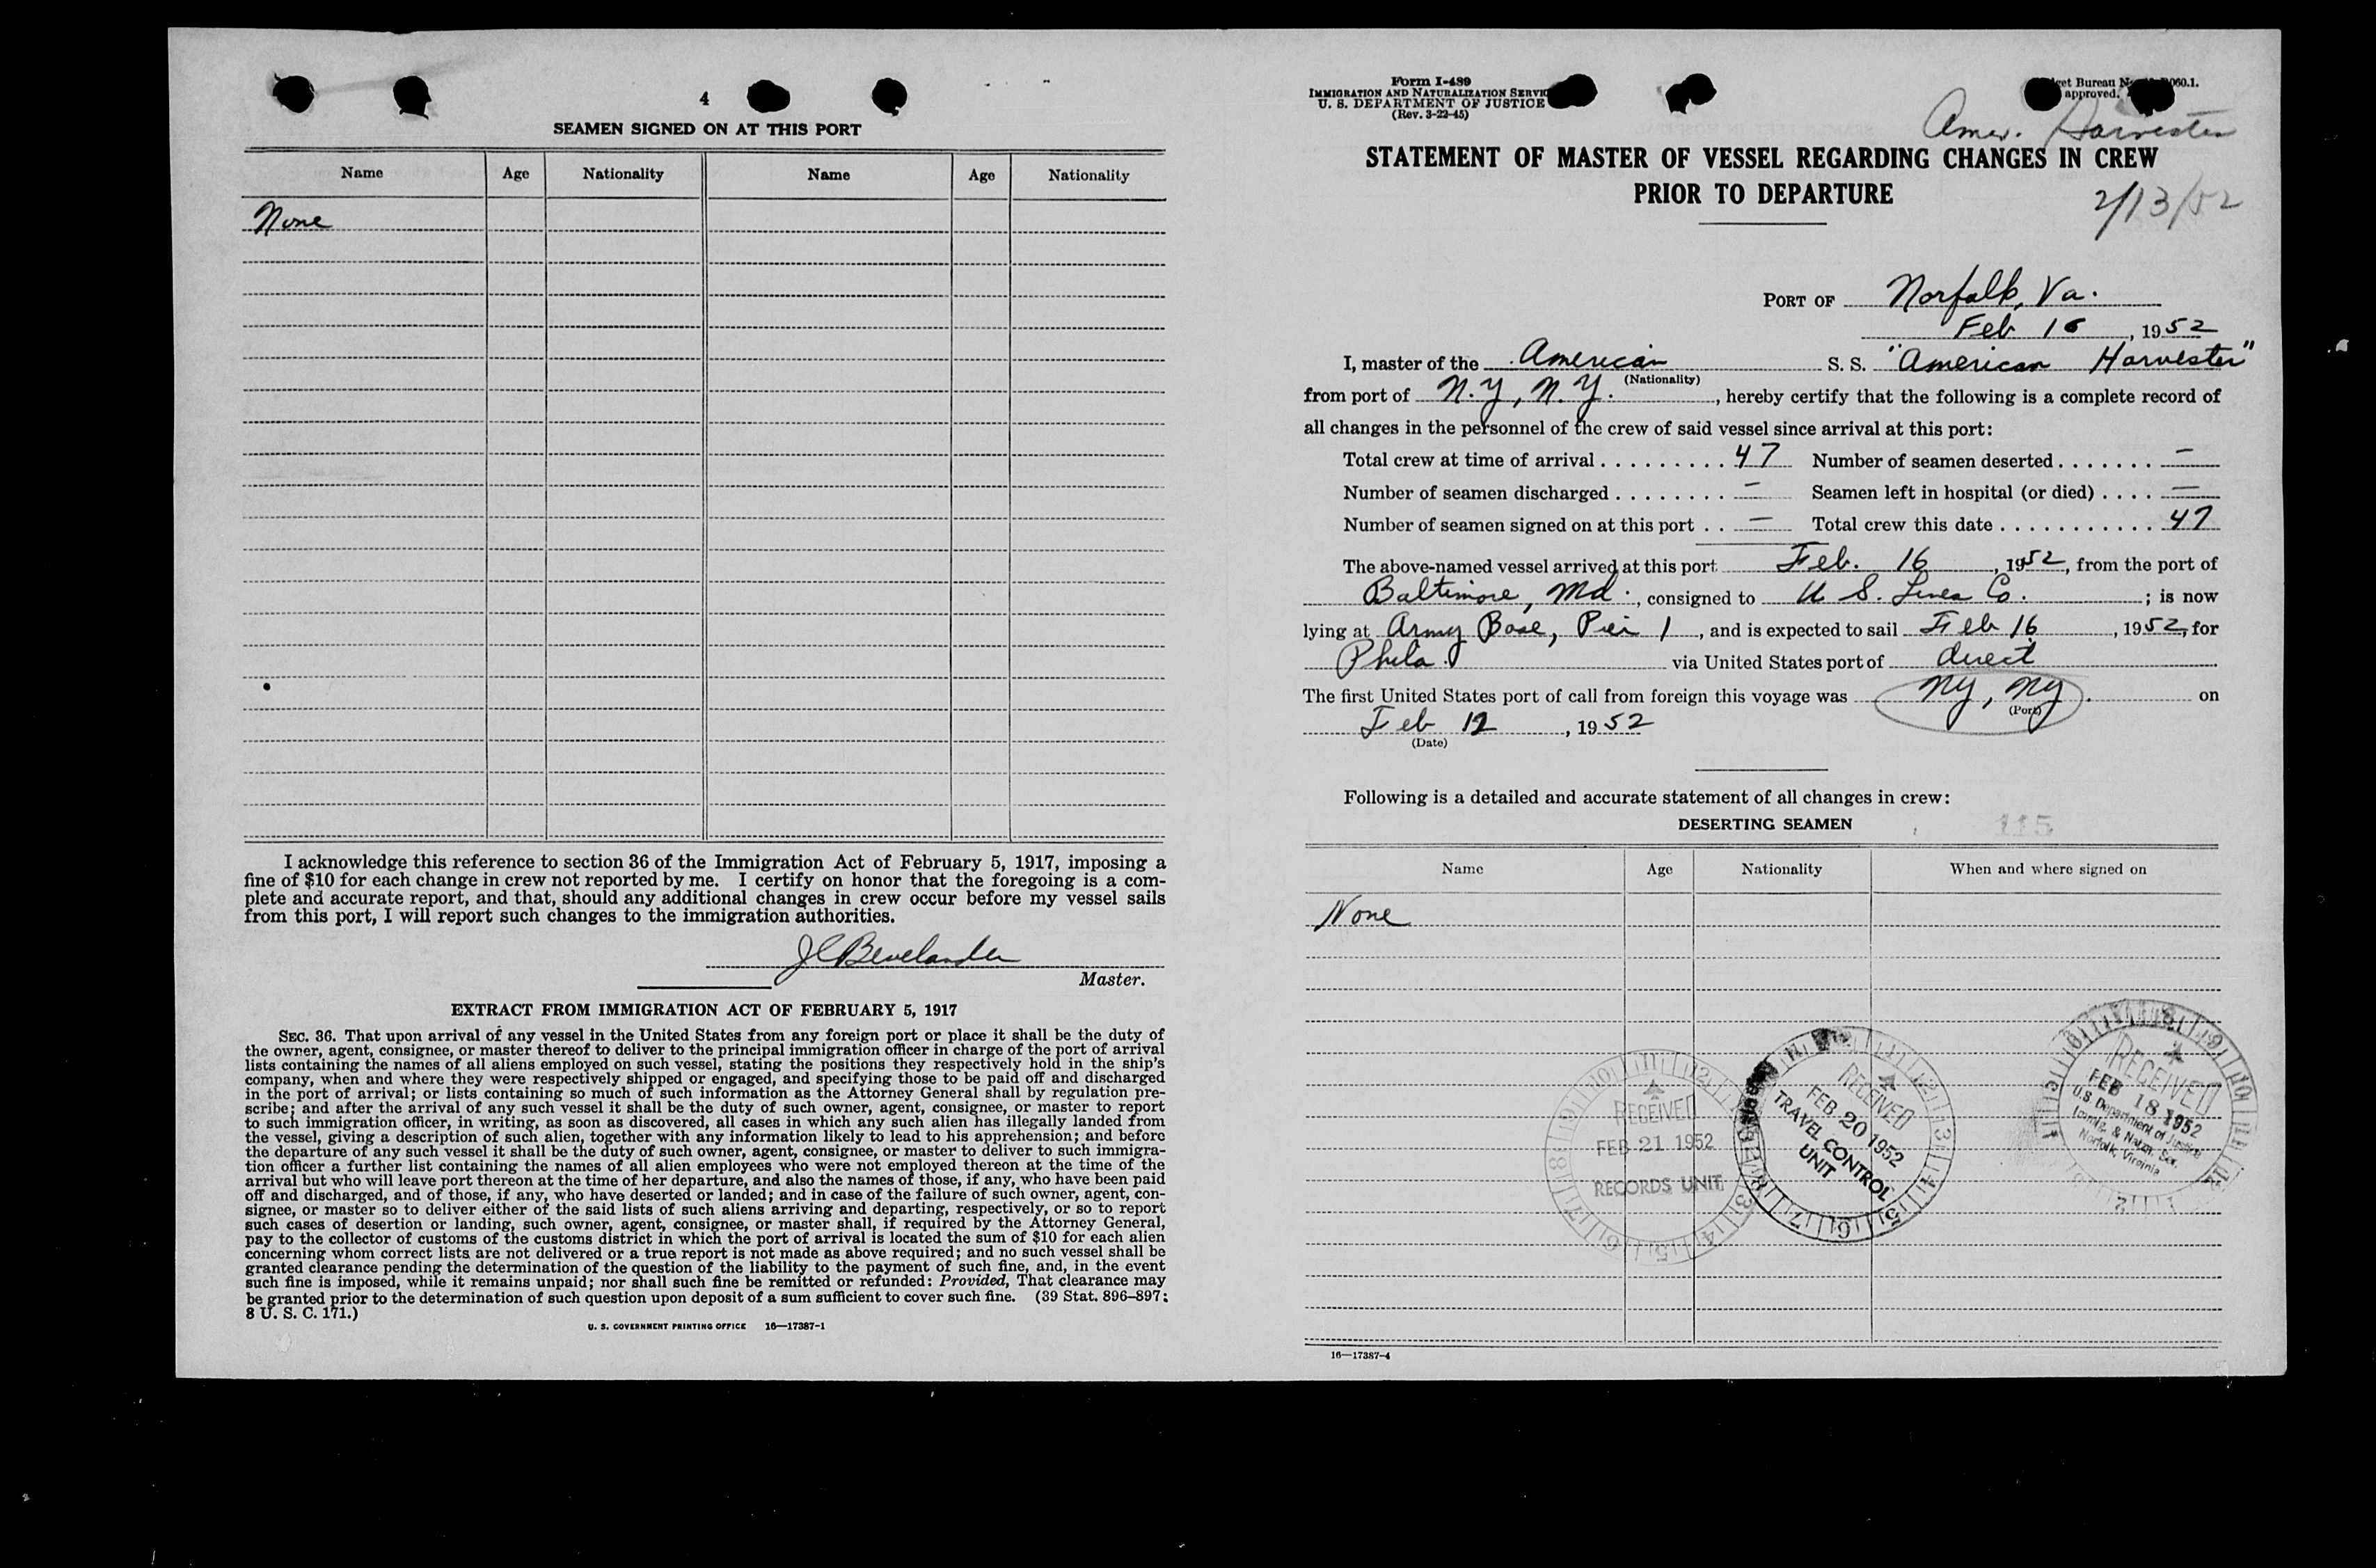 4
SEAMEN SIGNED ON AT THIS PORT
Name Age Nationality Name Age Nationality
None
I acknowledge this reference to section 36 of the Immigration Act of February 5, 1917, imposing a
fine of $10 for each change in crew not reported by me. I certify on honor that the foregoing is a com-
plete and accurate report, and that, should any additional changes in crew occur before my vessel sails
from this port, I will report such changes to the immigration authorities.
JCBevelander
Master.
EXTRACT FROM IMMIGRATION ACT OF FEBRUARY 5, 1917
SEC. 36. That upon arrival of any vessel in the United States from any foreign port or place it shall be the duty of
the owner, agent, consignee, or master thereof to deliver to the principal immigration officer in charge of the port of arrival
lists containing the names of all aliens employed on such vessel, stating the positions they respectively hold in the ship's
company, when and where they were respectively shipped or engaged, and specifying those to be paid off and discharged
in the port of arrival; or lists containing so much of such information as the Attorney General shall by regulation pre-
scribe; and after the arrival of any such vessel it shall be the duty of such owner, agent, consignee, or master to report
to such immigration officer, in writing, as soon as discovered, all cases in which any such alien has illegally landed from
the vessel, giving a description of such alien, together with any information likely to lead to his apprehension; and before
the departure of any such vessel it shall be the duty of such owner, agent, consignee, or master to deliver to such immigra-
tion officer a further list containing the names of all alien employees who were not employed thereon at the time of the
arrival but who will leave port thereon at the time of her departure, and also the names of those, if any, who have been paid
off and discharged, and of those, if any, who have deserted or landed; and in case of the failure of such owner, agent, con-
signee, or master so to deliver either of the said lists of such aliens arriving and departing, respectively, or so to report
such cases of desertion or landing, such owner, agent, consignee, or master shall, if required by the Attorney General,
pay to the collector of customs of the customs district in which the port of arrival is located the sum of $10 for each alien
concerning whom correct lists are not delivered or a true report is not made as above required; and no such vessel shall be
granted clearance pending the determination of the question of the liability to the payment of such fine, and, in the event
such fine is imposed, while it remains unpaid; nor shall such fine be remitted or refunded: Provided, That clearance may
be granted prior to the determination of such question upon deposit of a sum sufficient to cover such fine. (39 Stat. 896–897;
8 U. S. C. 171.)
U. S. GOVERNMENT PRINTING OFFICE 16—17387-1
Form I-489
IMMIGRATION AND NATURALIZATION
U. S. DEPARTMENT OF JUSTICE
(Rev. 3-22-45)
Bureau
approved.
Amer. Harvester
STATEMENT OF MASTER OF VESSEL REGARDING CHANGES IN CREW
PRIOR TO DEPARTURE
2/13/52
PORT OF Norfolk, Va.
Feb 16, 1952
I, master of the American S. S. "American Harvester"
(Nationality)
from port of N.Y, N.Y., hereby certify that the following is a complete record of
all changes in the personnel of the crew of said vessel since arrival at this port:
Total crew at time of arrival......... 47 Number of seamen deserted....... —
Number of seamen discharged........ — Seamen left in hospital (or died).... —
Number of seamen signed on at this port.. — Total crew this date........... 47
The above-named vessel arrived at this port Feb. 16, 1952, from the port of
Baltimore, Md., consigned to U S. Lines Co.; is now
lying at Army Base, Pier 1, and is expected to sail Feb 16, 1952, for
Phila. via United States port of direct
The first United States port of call from foreign this voyage was NY, NY. on
(Port)
Feb 12, 1952
(Date)
Following is a detailed and accurate statement of all changes in crew:
DESERTING SEAMEN
115
Name Age Nationality When and where signed on
None
RECEIVED
FEB 21 1952
RECORDS UNIT
RECEIVED
FEB 20 1952
TRAVEL CONTROL
UNIT
RECEIVED
FEB 18 1952
U.S. Department of Justice
Immig. & Natzn. Ser.
Norfolk, Virginia
16—17387-4